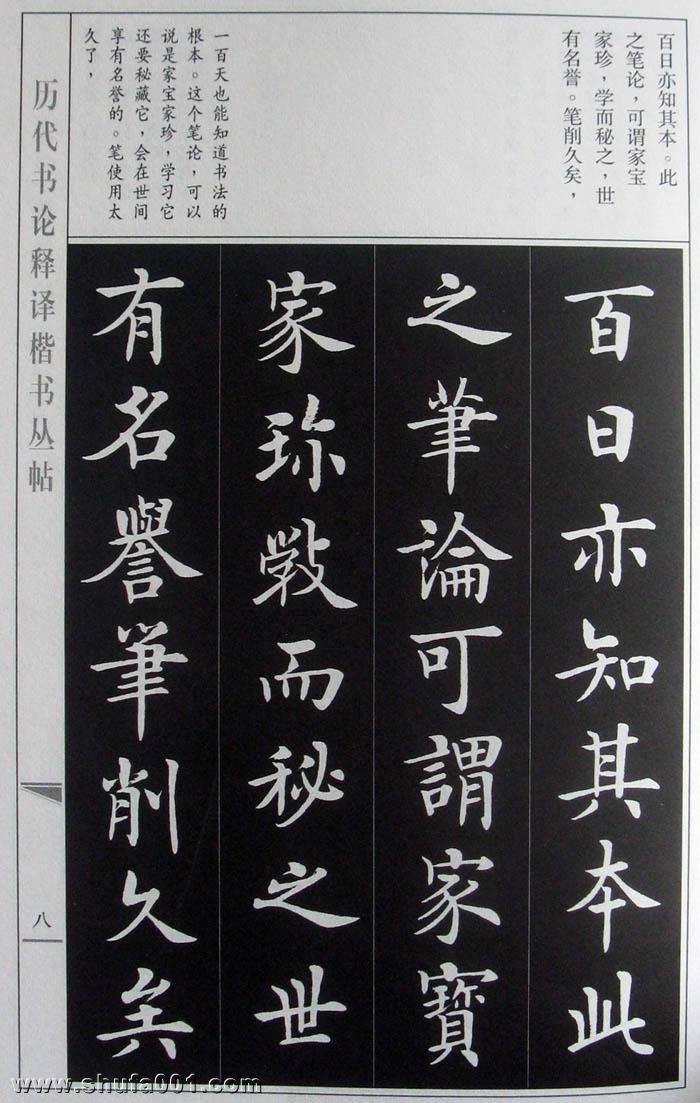 百日亦知其本。此
之笔论，可谓家宝
家珍，学而秘之，世
有名誉。笔削久矣，
一百天也能知道书法的
根本。这个笔论，可以
说是家宝家珍，学习它
还要秘藏它，会在世间
享有名誉的。笔使用太
久了，
百日亦知其本此
之筆論可謂家寶
家珎斆而秘之世
有名譽筆削久矣
历代书论释译楷书丛帖
八
www.shufa001.com